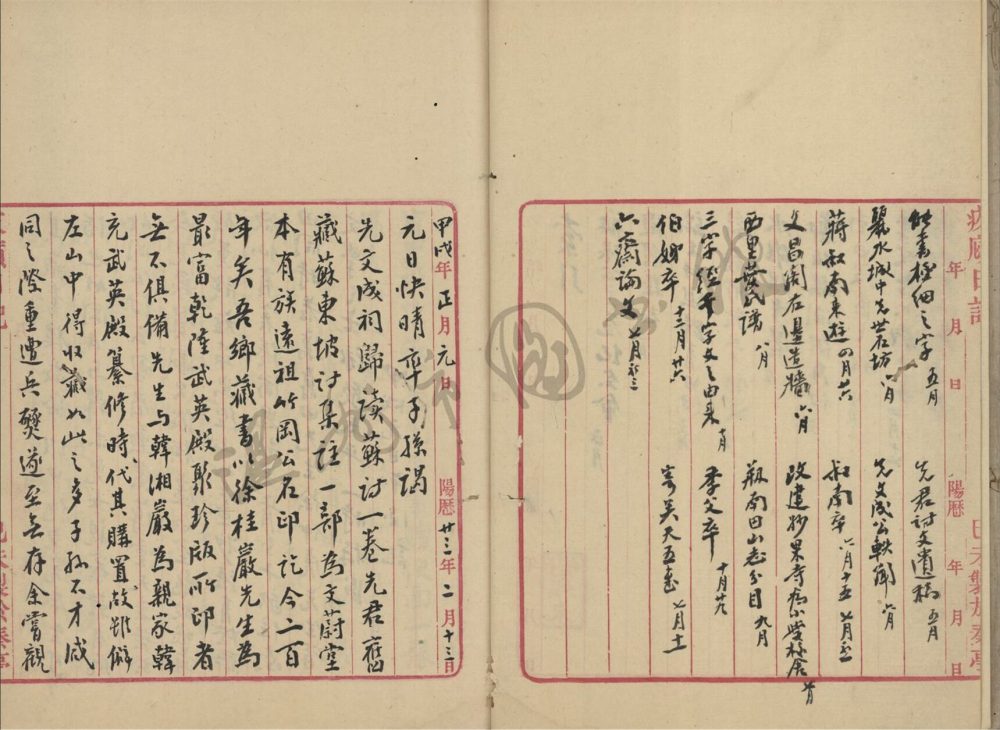 年 月 日 陽曆 年 月 日
能書極細之字 五月 先君討文遺稿 五月
麗水城中先世石坊 六月 先文成公軼聞 六月
蔣叔南東遊 四月廿六 叔南卒 六月十五
文昌閣左邊造牆 六月 改建妙果寺為小學校舍
西里葉氏譜 八月 瓯南田山志分目 九月
三字經千字文之由來 季父卒 十月
伯姊卒 十二月廿六 寄吴天五書
六齋論文
甲戌年正月元日 陽曆廿三年二月十三日
元日快晴率子孫謁
先文成祠歸讀蘇詩一卷先君舊
藏蘇東坡詩集註一部為文蔚堂
本有族遠祖竹岡公名印訖今二百
年矣吾鄉藏書以徐桂巖先生為
最富乾隆武英殿聚珍版所印者
無不俱備先生與韓湘巖為親家韓
充武英殿纂修時代其購置故雖僻
左山中得收藏如此之多子孫不才咸
同之際重遭兵燹遂至無存余嘗觀